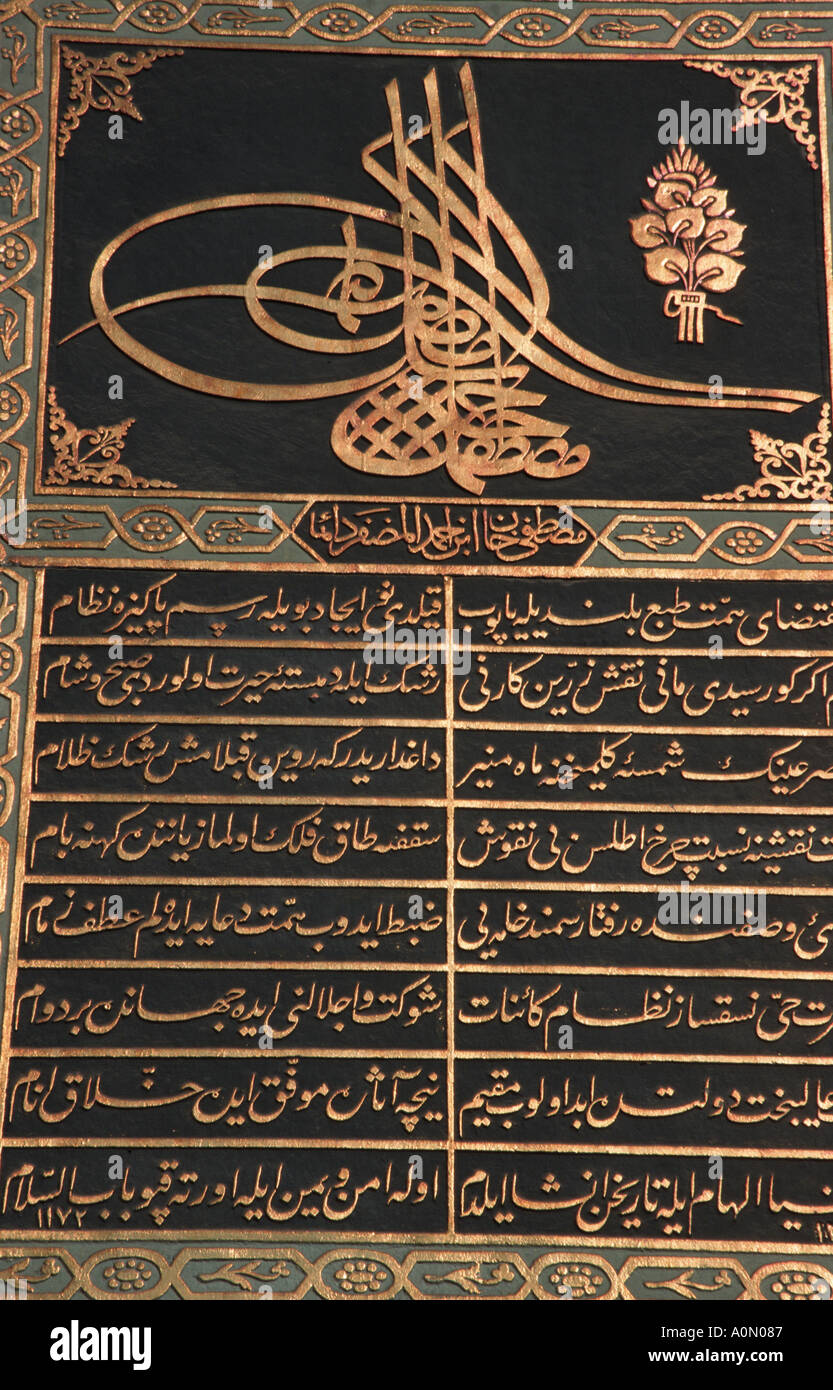 مصطفى خان ابن احمد المظفر دائما
همت طبع بلند يله ياپوب قيلدى نفى ايجاد بويله رسم پاكيزه نظام
اكر كورسيدى مانى نقش زرين كارنى رشك ايله دمبستهٔ حيرت اولوردى صبح و شام
عينك شمسهٔ كليمنه ماه منير داغداريدر كه روين قبلامش رشك ظلام
نقشينه نسبت چرخ اطلس بى نقوش سقفنه طاق فلك اولماز ياننده كهنه بام
وصفنده رفتار سمند خامه يى ضبط ايدوب همت دعايه ايده لم عطف زمام
حى نسقساز نظام كائنات شوكت و اجلالنى ايده جهانده بردوام
عاليبخت دولتده ابد اولوب مقيم نيچه آثاره موفق ايده خلاق انام
الهام ايله تاريخن انشا ايلدم اوله امن و يمن ايله اورته قپو باب السلام
١١٧٢
alamy
a
Image ID: A0N087
www.alamy.com